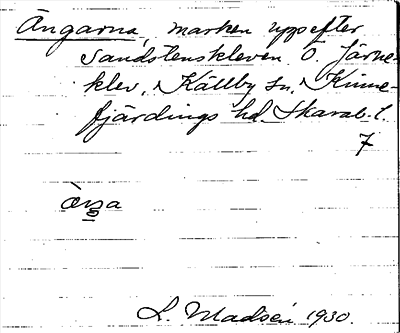 Ängarna, marken uppefter
sandstenskleven Ö. Järne-
klev, Källby sn. Kinne-
fjärdings hd. Skarab. l.
7
L. Madsén 1930.